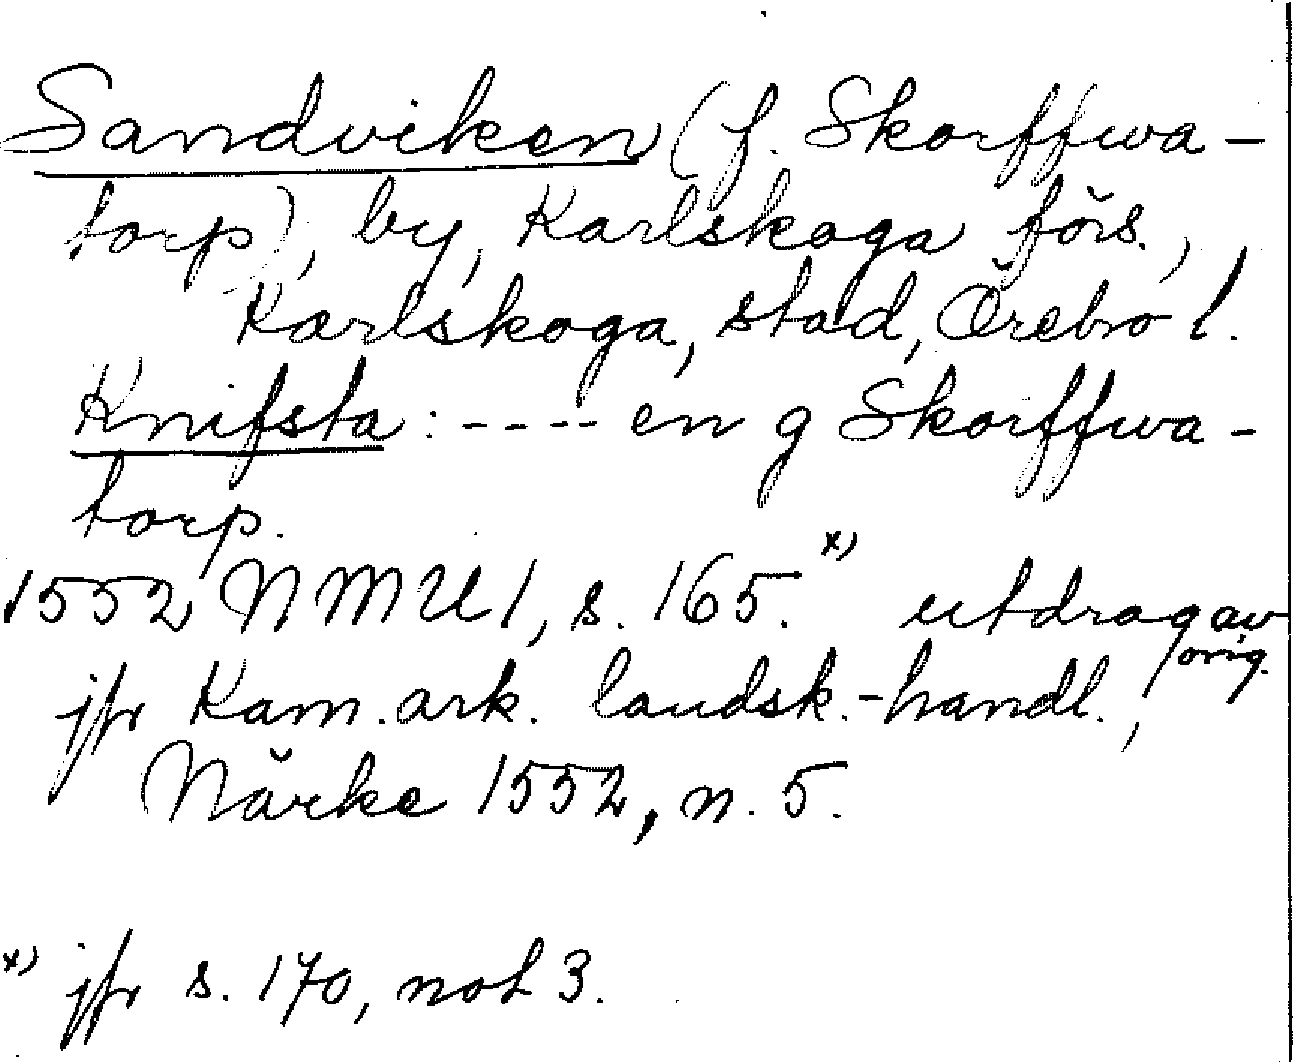 Sandviken (f. Skorffwa-
torp), by, Karlskoga förs.,
Karlskoga, stad, Örebro l.
Knifsta: ---- en g Skorffwa-
torp.
1552 NMU 1, s. 165. x) utdrag av
orig.
jfr Kam.ark. landsk.-handl.,
Närke 1552, n. 5.
x) jfr s. 170, not 3.